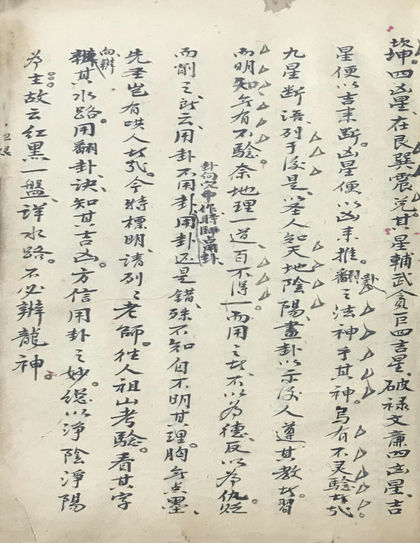 坎坤四凶星在艮巽震兌其星輔武貪巨四吉星破祿文廉四凶星吉
星便以吉未断凶星便以凶未推翻卦之法神乎其神烏有不灵驗者哉
九星断語列于後是圣人知天地陰陽畫卦以示後人遵其教者習
而明知無有不驗奈地理一道百不得一而用之者不以為德反以為仇貶
而謭之既云用卦不用卦用卦还是錯殊不知自不明其理胸無点墨
卦向定命作時師点卦
先圣豈有哄人者哉今特標明請列之老師往人祖山考驗看其字
向辨
其水路用翻卦訣知其吉凶方信用卦之妙總以淨陰淨陽
為主故云紅黑一盤詳水路不必辦龍神